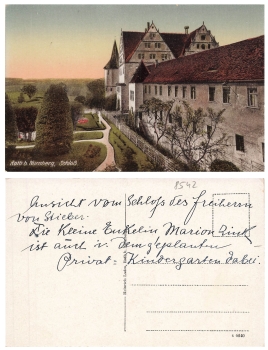 Roth b. Nürnberg, Schloß.
8542
Ansicht vom Schloss des freiherrn
von Stieber.
Die Kleine Enkelin Marion
ist auch in dem geplanten
Privat - Kindergarten dabei.